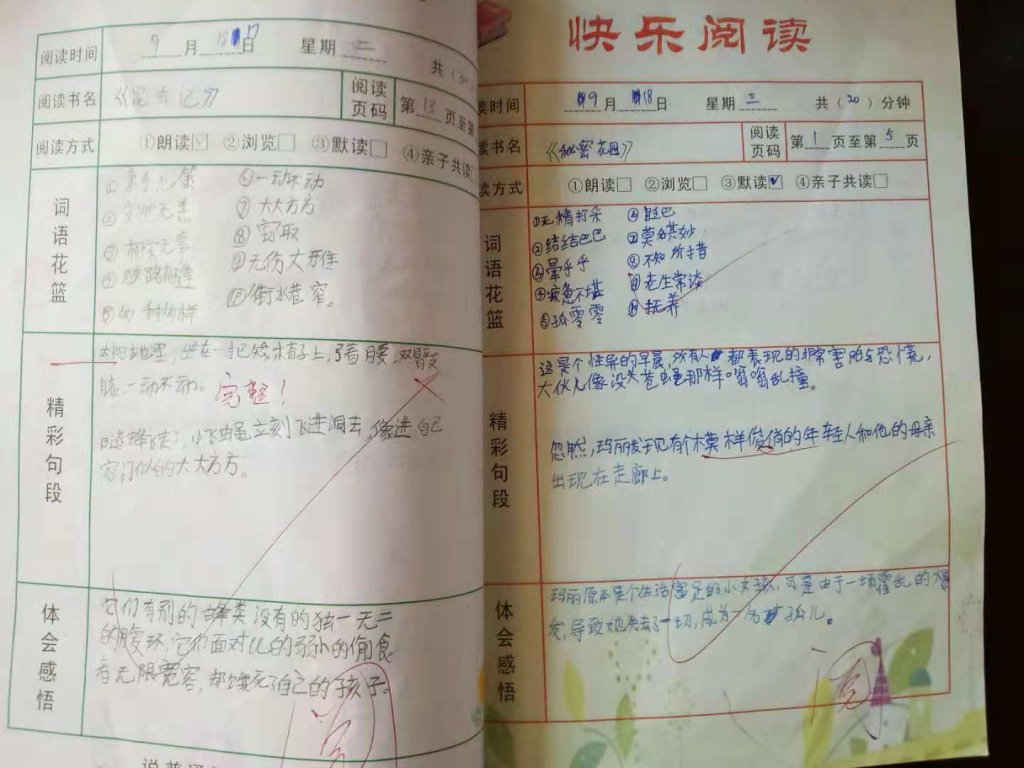 阅读时间 9月 日 星期二 共(
阅读书名 《昆虫记》 阅读页码 第13页至第
阅读方式 ①朗读☑ ②浏览□ ③默读□ ④亲子共读
词语花篮
⑥一动不动
⑦大大方方
②安然无恙 ⑧窃取
③相安无事 ⑨无伤大雅
⑩街水巷窄。
精彩句段
坐在一把矮椅子上,弯着腰,双臂支
膝,一动不动。 完整!
小飞蝇立刻飞进洞去,像进自己
家门似的大大方方。
体会感悟
它们有别的蜂类没有的独一无二
的腹环,它们面对比的弱小的偷食
者无限宽容,却饿死了自己的孩子。
阅
快乐阅读
读时间 9月18日 星期三 共(20)分钟
读书名 《秘密花园》 阅读页码 第1页至第5页
读方式 ①朗读□ ②浏览□ ③默读☑ ④亲子共读□
词语花篮
①无精打采
②结结巴巴 ⑦莫名其妙
③晕乎乎 ⑧不知所措
④疲惫不堪 ⑨老生常谈
⑤孤零零 ⑩抚养
精彩句段
这是个怪异的早晨,所有人都表现的非常害怕与恐慌,
大伙儿像没头苍蝇那样嗡嗡乱撞。
忽然,玛丽发现有个模样俊俏的年轻人和他的母亲
出现在走廊上。
体会感悟
玛丽原本是个生活富足的小女孩,可是由于一场霍乱的爆
发,导致她失去了一切,成为孤儿。
阅